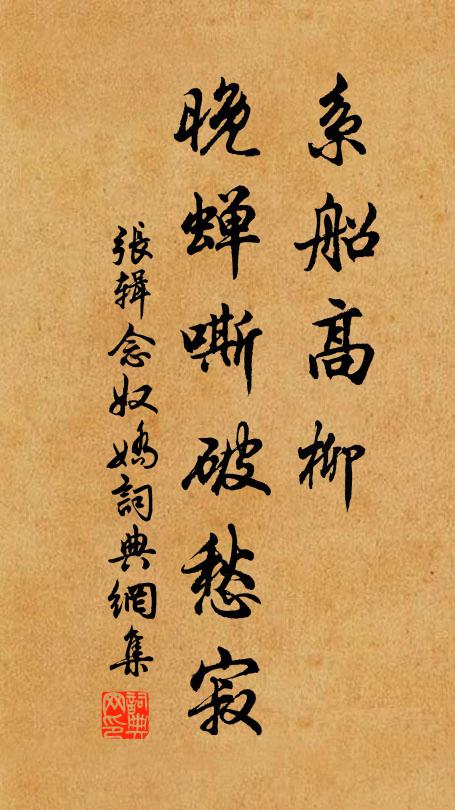 系船高柳
晚蝉嘶破愁寂
張辑念奴嬌詞典網集
詞典网印